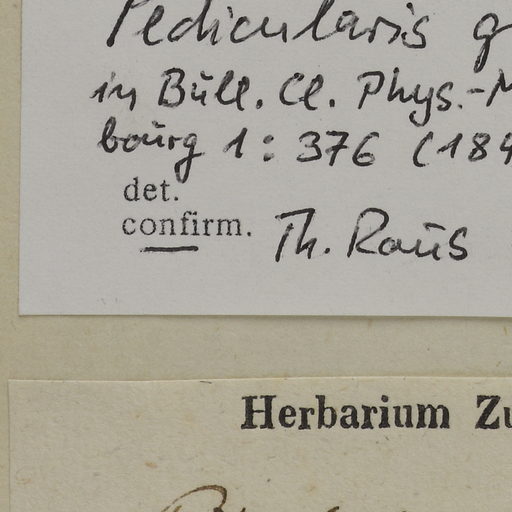 Pedicularis g
in Bull. Cl. Phys.-M
bourg 1: 376 (184
det.
confirm. Th. Raus
Herbarium Zu